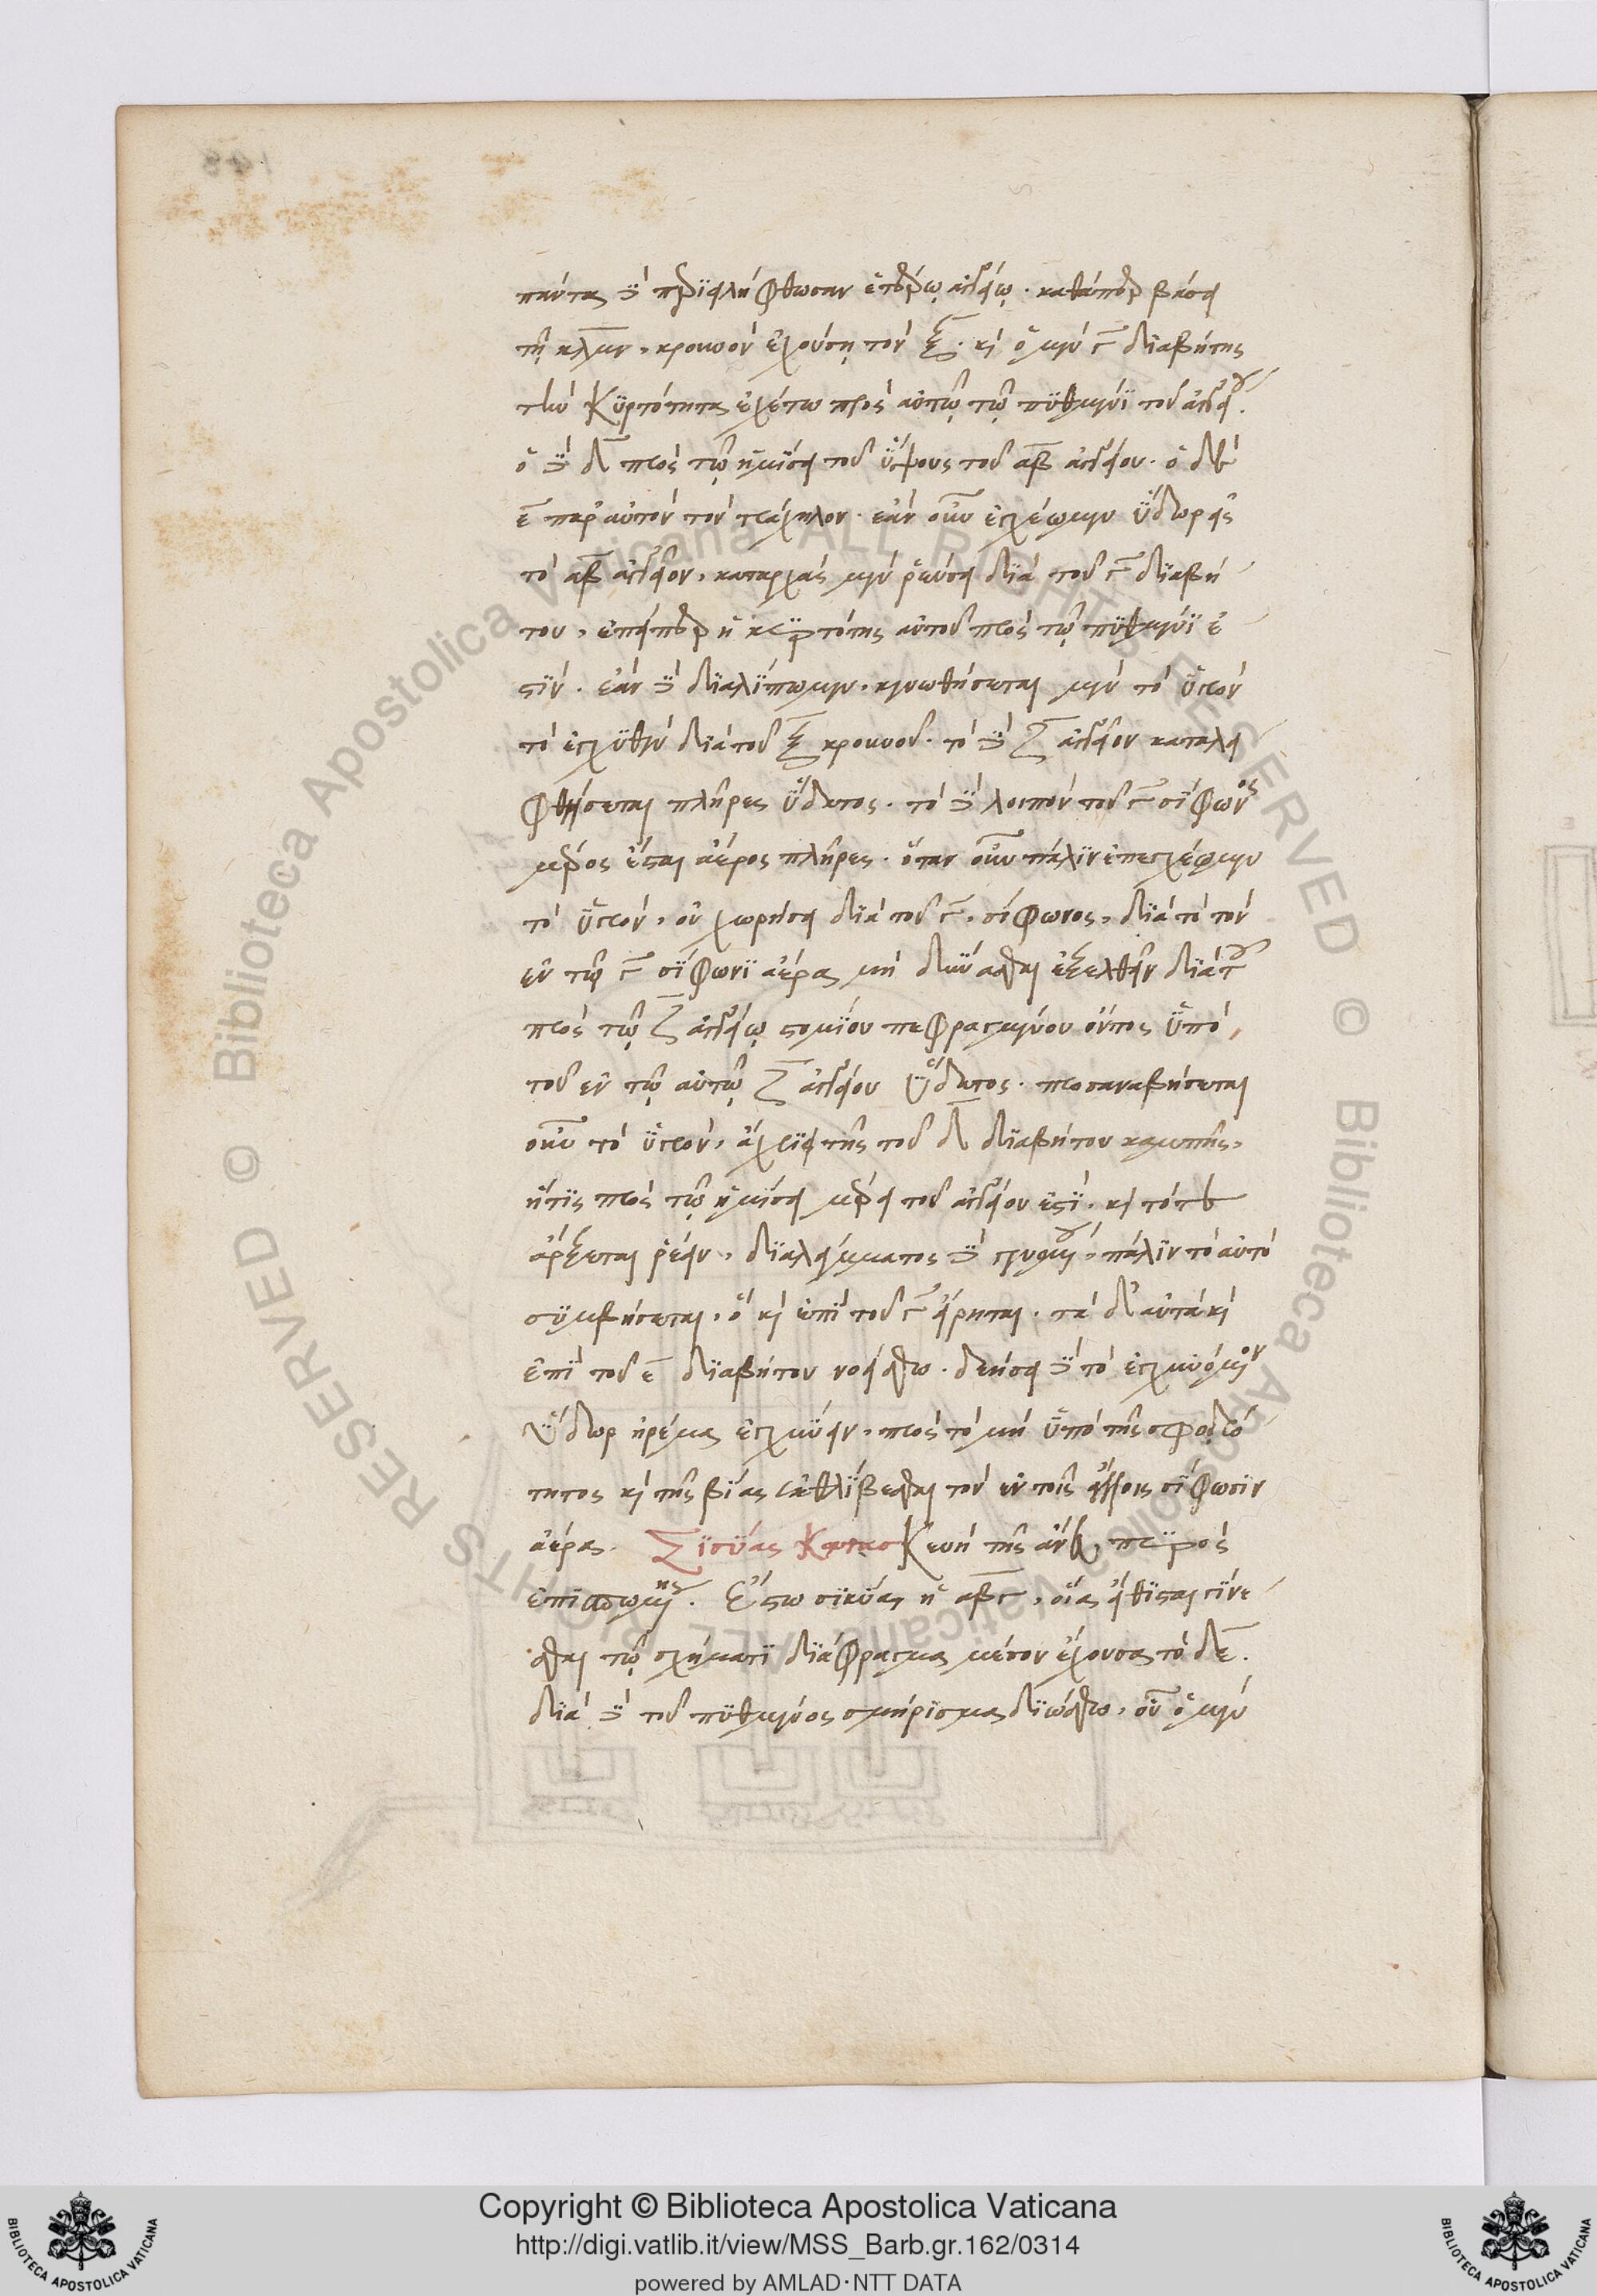 πάντα δὲ περϊειλήφθωσαν ἑτέρῳ ἀγγείῳ. καθάπερ βάσει
τῇ κλμν, κρουνὸν ἐχούσῃ τὸν ξ. καὶ ὁ μὲν γ διαβήτης
τὴν κϋρτότητα ἐχέτω πρὸς αὐτῷ τῷ πϋθμένϊ τοῦ ἀγγείου.
ὁ δὲ δ πρὸς τῷ ἡμίσει τοῦ ὕψους τοῦ αβ ἀγγείου. ὁ δὲ
ε παρ' αὐτὸν τὸν τράχηλον. ἐὰν οὖν ἐγχέωμεν ὕδωρ εἰς
τὸ αβ ἀγγεῖον, καταρχὰς μὲν ῥεύσει διὰ τοῦ γ διαβή
του, ἐπείπερ ἡ κϋρτότης αὐτοῦ πρὸς τῷ πϋθμένϊ ἐ
στϊν. ἐὰν δὲ διαλϊπωμεν, κενωθήσεται μὲν τὸ ὑγρὸν
τὸ ἐγχϋθὲν διὰ τοῦ ξ κρουνοῦ. τὸ δὲ ζ ἀγγεῖον καταλει
φθήσεται πλῆρες ὕδατος. τὸ δὲ λοιπὸν τοῦ γ σίφωνος
μέρος ἔσται ἀέρος πλῆρες. ὅταν οὖν πάλϊν ἐπεγχέωμεν
τὸ ὑγρὸν, οὐ χωρήσει διὰ τοῦ γ, σίφωνος, διὰ τὸ τὸν
ἐν τῷ γ σίφωνϊ ἀέρα μὴ δύνασθαι ἐξελθεῖν διὰ τοῦ
πρὸς τῷ ζ ἀγγείῳ στομίου πεφραγμένου ὄντος ὑπὸ
τοῦ ἐν τῷ αὐτῷ ζ ἀγγείου ὕδατος. προσαναβήσεται
οὖν τὸ ὑγρὸν, ἄχρι τῆς τοῦ δ διαβήτου καμπῆς,
ἥτϊς πρὸς τῷ ἡμίσει μέρει τοῦ ἀγγείου ἐστϊ. καὶ τότε
ἄρξεται ῥέειν, διαλείμματος δὲ γενομένου, πάλϊν τὸ αὐτὸ
σϋμβήσεται, ὃ καὶ ἐπὶ τοῦ γ εἴρηται. τὰ δ' αὐτὰ καὶ
ἐπὶ τοῦ ε διαβήτου νοείσθω. δεήσει δὲ τὸ ἐγχεόμενον
ὕδωρ ἠρέμα ἐγχεύειν, πρὸς τὸ μὴ ὑπὸ τῆς σφοδρό
τητος καὶ τῆς βίας ἐκθλϊβεσθαι τὸν ἐν τοῖς ἀγγείοις σίφωσϊν
ἀέρα. Σϊκύας κατασκευὴ τῆς ἄνευ πϋρὸς
ἐπισπωμένης. Ἔστω σϊκύα ἡ αβγ, οἵα εἴθϊσται γίνε
σθαι τῷ σχήματϊ διάφραγμα μέσον ἔχουσα τὸ δε.
διὰ δὲ τοῦ πϋθμένος σμήρισμα διώσθω, οὗ ὁ μὲν
Copyright © Biblioteca Apostolica Vaticana
http://digi.vatlib.it/view/MSS_Barb.gr.162/0314
powered by AMLAD·NTT DATA